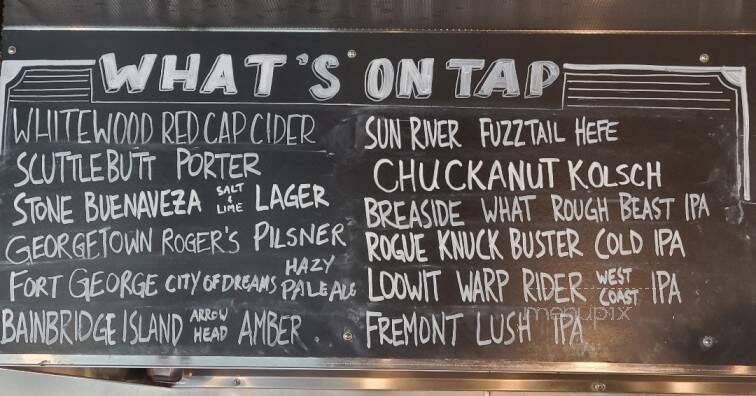 WHAT'S ON TAP
WHITEWOOD RED CAP CIDER
SCUTTLEBUTT PORTER
STONE BUENAVEZA SALT & LIME LAGER
GEORGETOWN ROGER'S PILSNER
FORT GEORGE CITY OF DREAMS HAZY PALE ALE
BAINBRIDGE ISLAND ARROW HEAD AMBER
SUN RIVER FUZZTAIL HEFE
CHUCKANUT KOLSCH
BREASIDE WHAT ROUGH BEAST IPA
ROGUE KNUCK BUSTER COLD IPA
LOOWIT WARP RIDER WEST COAST IPA
FREMONT LUSH IPA
menupix